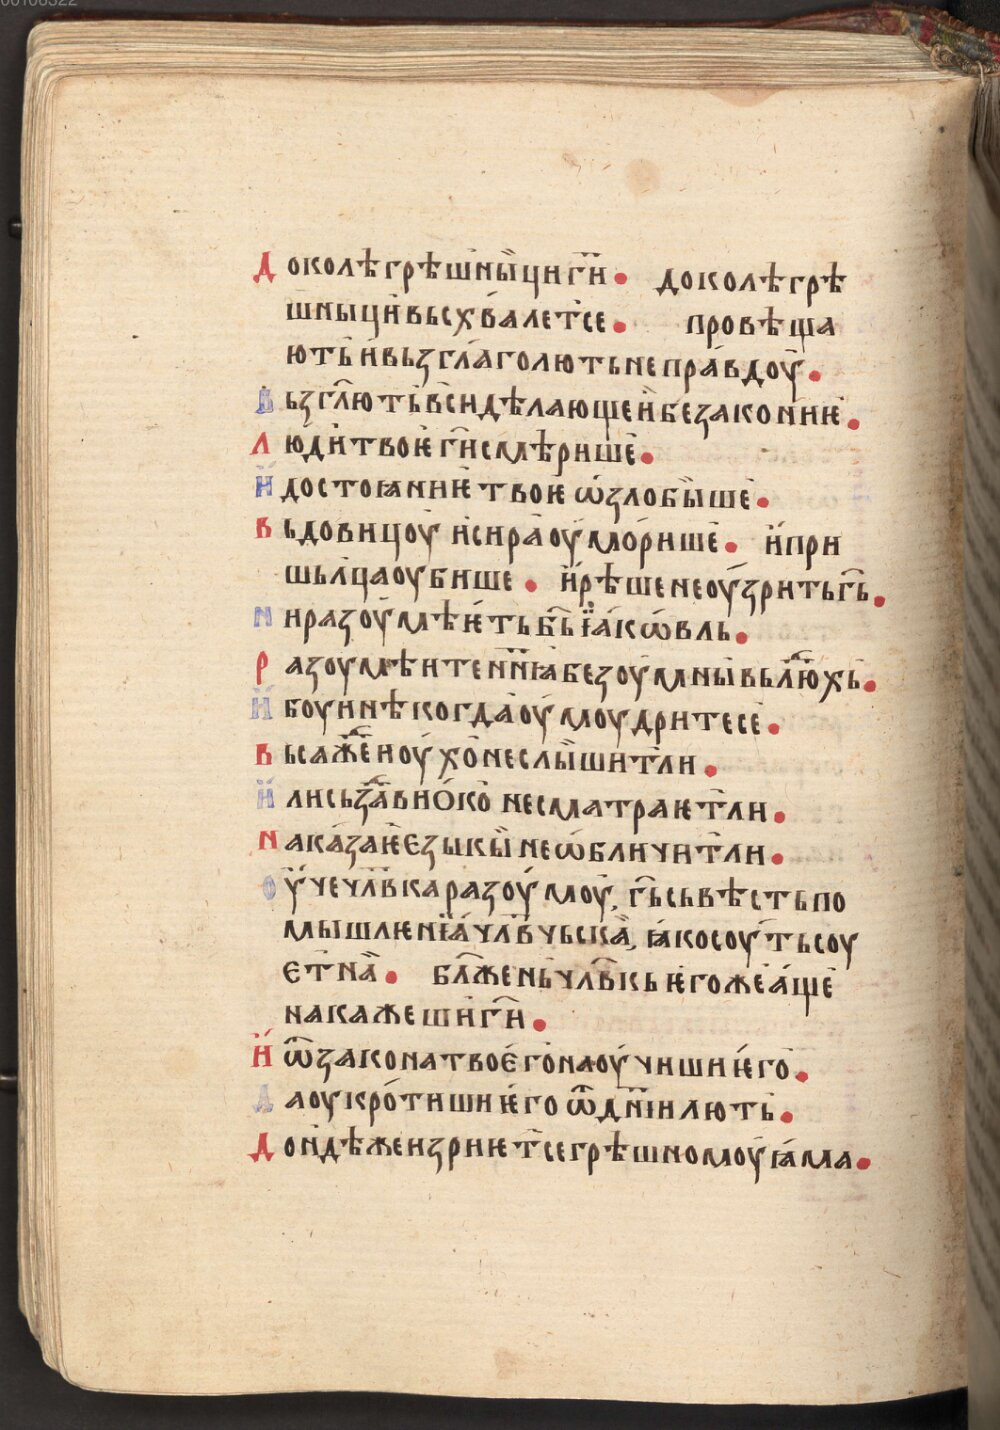 Доколѣ грѣшны̏ци г҃и • доколѣ грѣ
шныци вьсхвалет̑се • провѣща
ють и вьзглаголють неправдоу •
Вьзгл҃ють вси дѣлающеи безаконїи́ѥ •
Люди твоѥ г҃и смѣрише •
И достоꙗниѥ твоѥ ѡзлобы̏ше •
Вьдовицоу и сира оуморише • и при
шьлца оубише • и рѣше не оузрить г҃ь •
Ни разоумѣѥть б҃ь їаковль •
Разоумѣите нн҃ꙗ безоумны вь люд̑хь •
И боуи нѣкогда оумоудрите се •
Вьсажⷣеи оухо не слы̏шит̑ ли •
Или сьзⷣави око не сматраѥт̑ ли •
Наказаѥ ѥзыкы̏ не ѡбличит̑ ли •
Оучеи чл҃вка разоумоу, г҃ь сьвѣсть по
мышлѥнїа чл҃вчьска, ꙗко соуть соу
ѥтна • бл҃жень чл҃вкь ѥгоже аще
накажеши г҃и •
И ѿ закона твоѥго наоучиши ѥго •
Да оукротиши ѥго ѿ дн҃и лють •
Доидѣже изриѥт̑се грѣшномоу ꙗма •